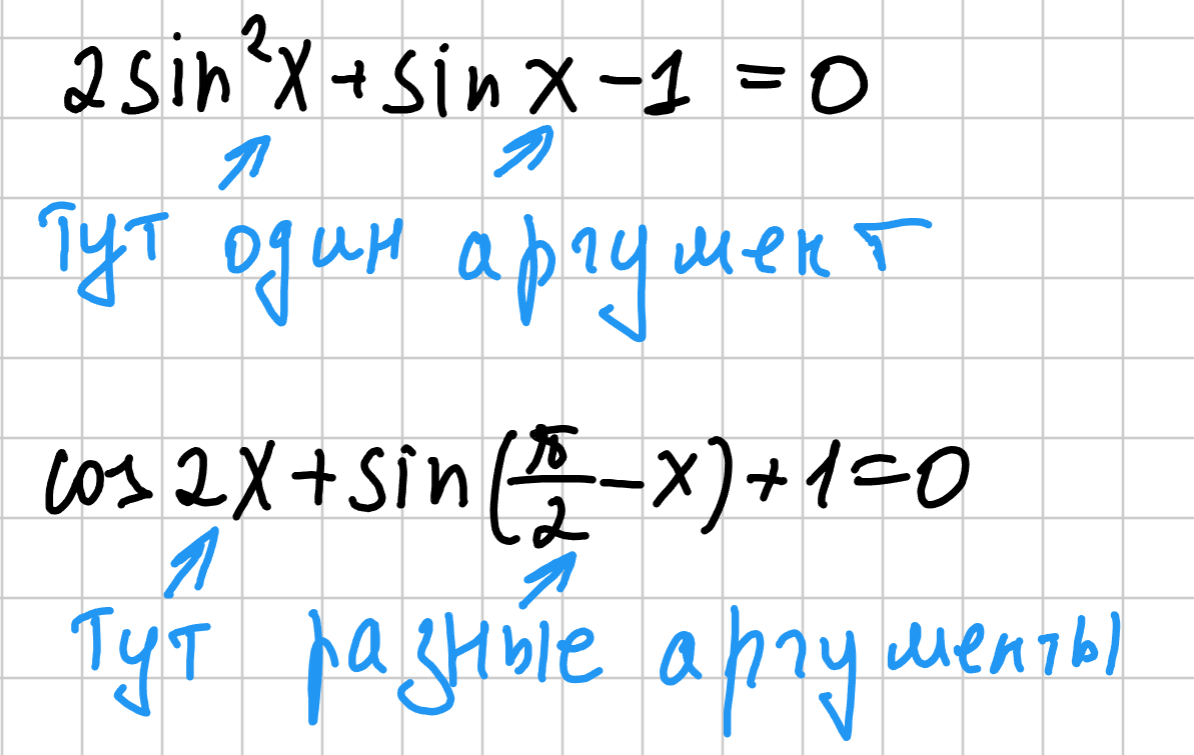 2sin²x+sin x-1=0
Тут один аргумент
cos2x+sin(π/2-x)+1=0
Тут разные аргументы